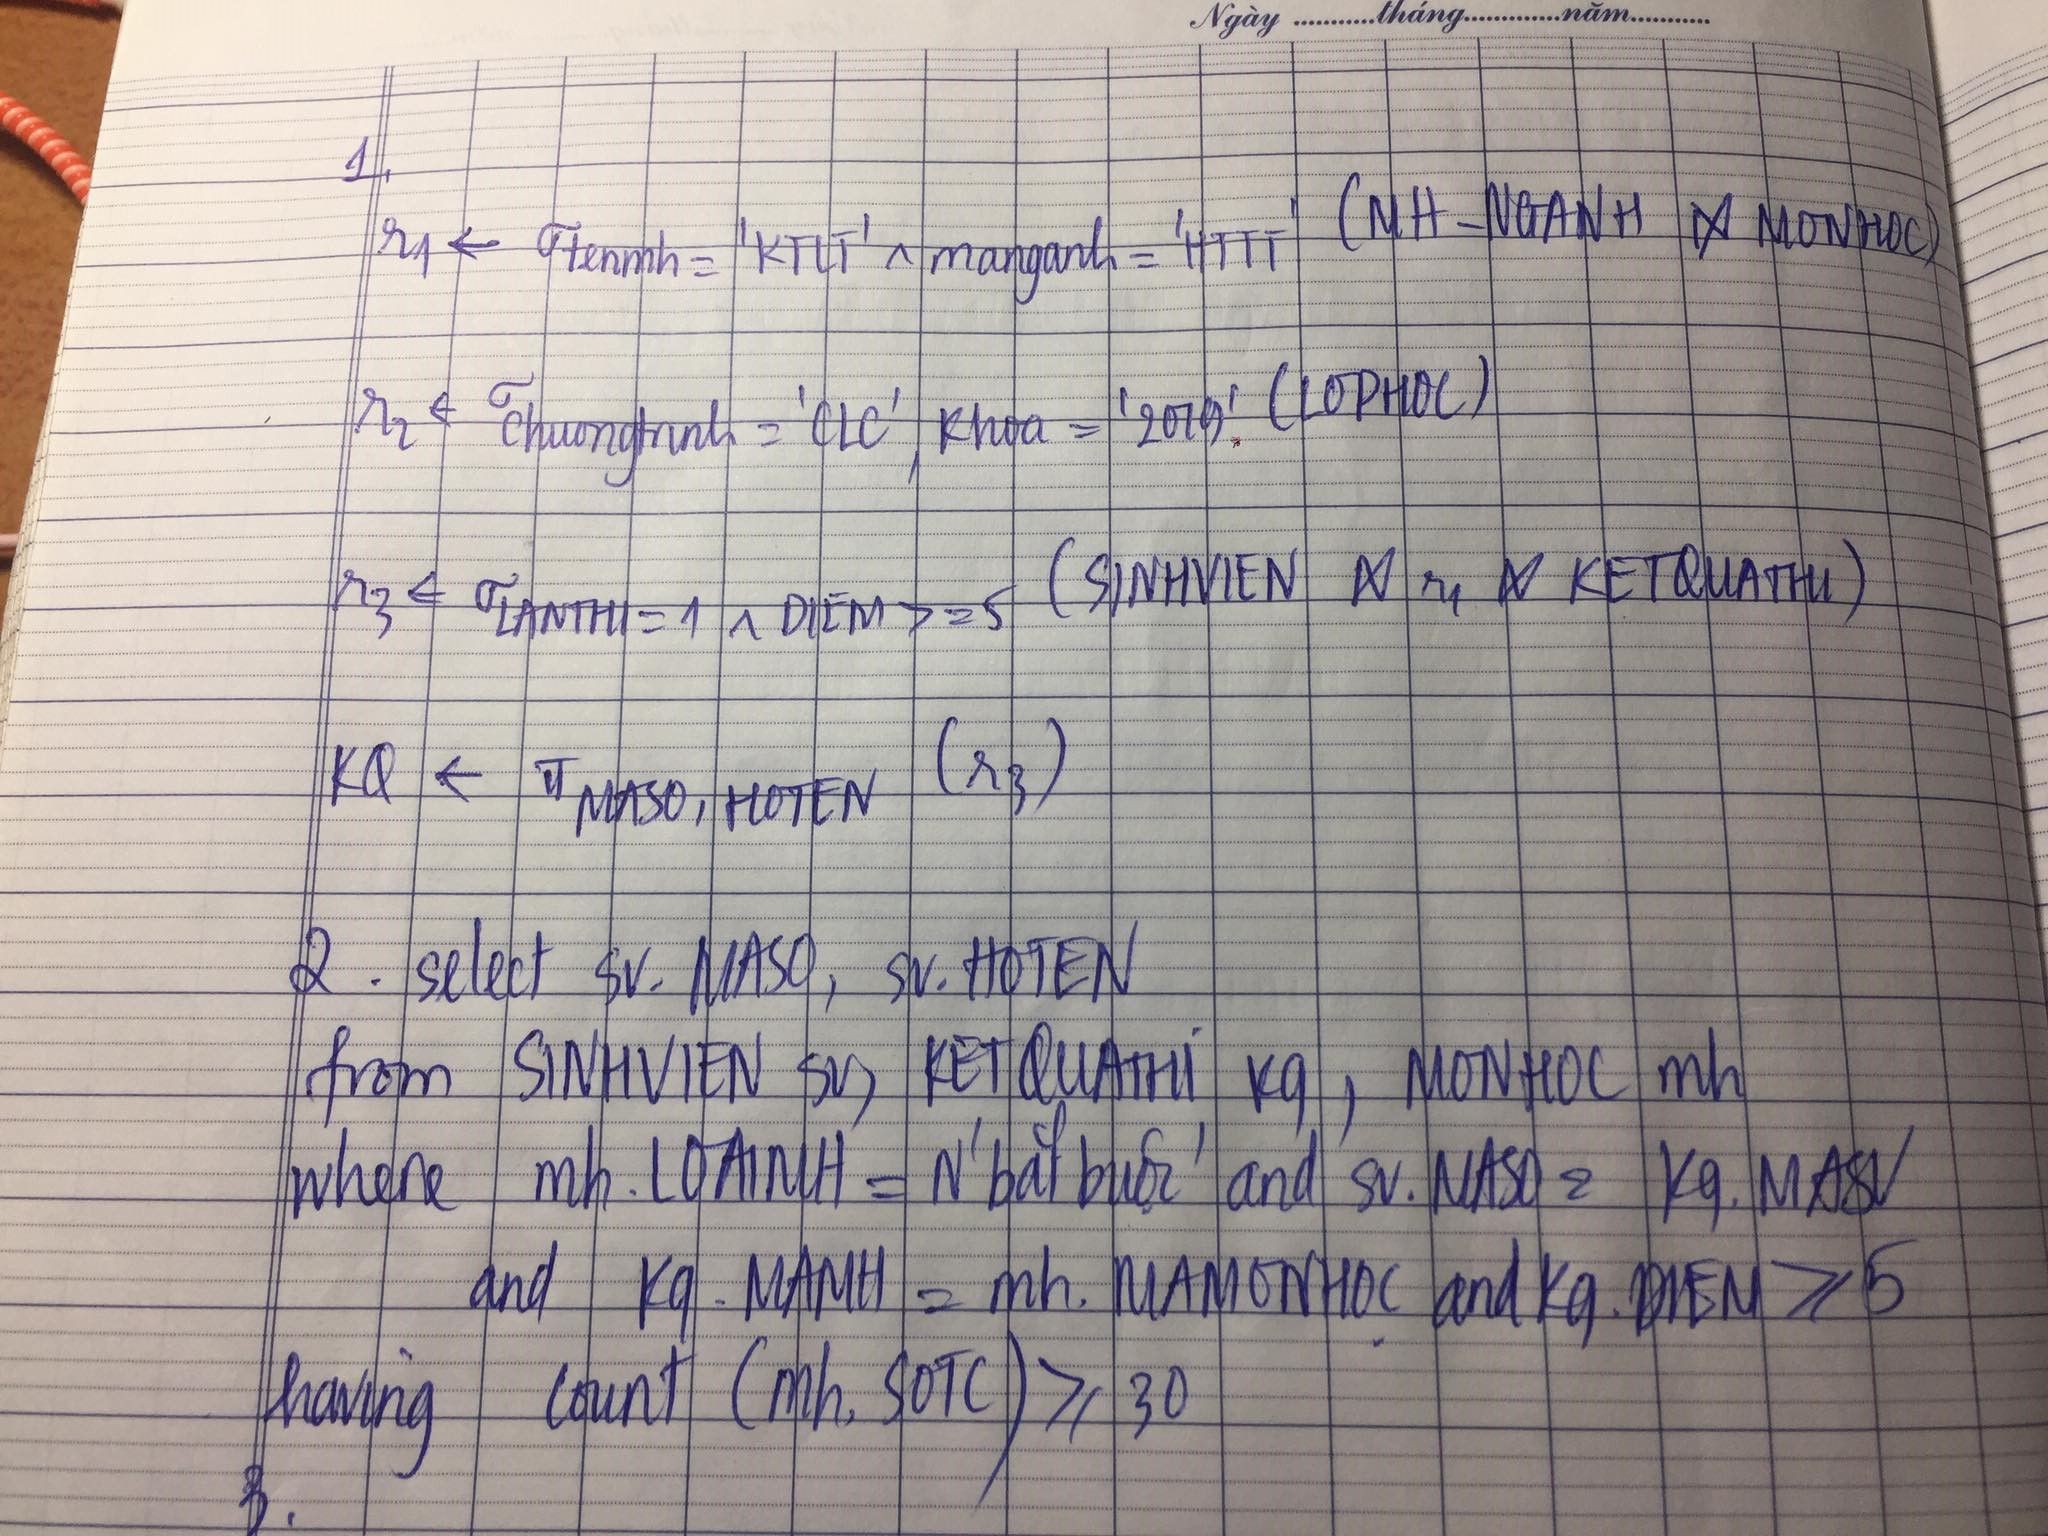 Ngày ...........tháng.............năm...........
1.
r1 ← σ tenmh = 'KTLT' ∧ manganh = 'HTTT' (MH_NGANH ⋈ MONHOC)
r2 ← σ chuongtrinh = 'CLC', khoa = '2019' (LOPHOC)
r3 ← σ LANTHI = 1 ∧ DIEM >= 5 (SINHVIEN ⋈ r1 ⋈ KETQUATHI)
KQ ← π MASO, HOTEN (r3)
2. select sv. MASO, sv. HOTEN
from SINHVIEN sv, KETQUATHI kq, MONHOC mh
where mh. LOAIMH = N'bắt buộc' and sv. MASO = kq. MASV
and kq. MAMH = mh. MAMONHOC and kq. DIEM ≥ 5
having count (mh. SOTC) ≥ 30
3.